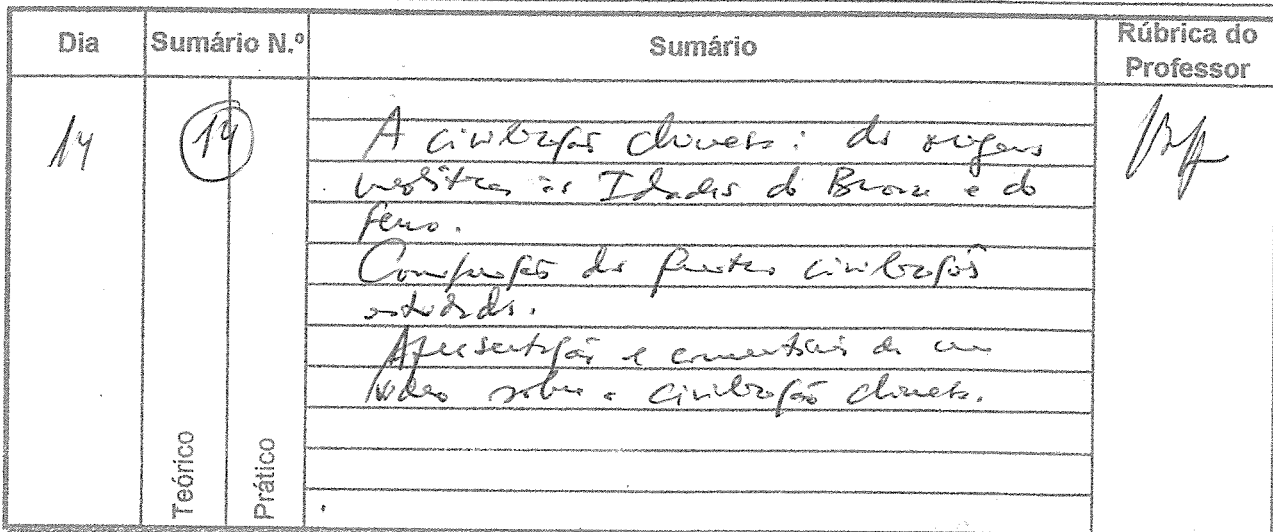 Dia Sumário N.º Sumário Rúbrica do Professor
14 14 A civilização chinesa: das origens
neolíticas às Idades do Bronze e do
ferro.
Comparação das quatro civilizações
estudadas.
Apresentação e comentário de um
vídeo sobre a civilização chinesa.
Teórico Prático